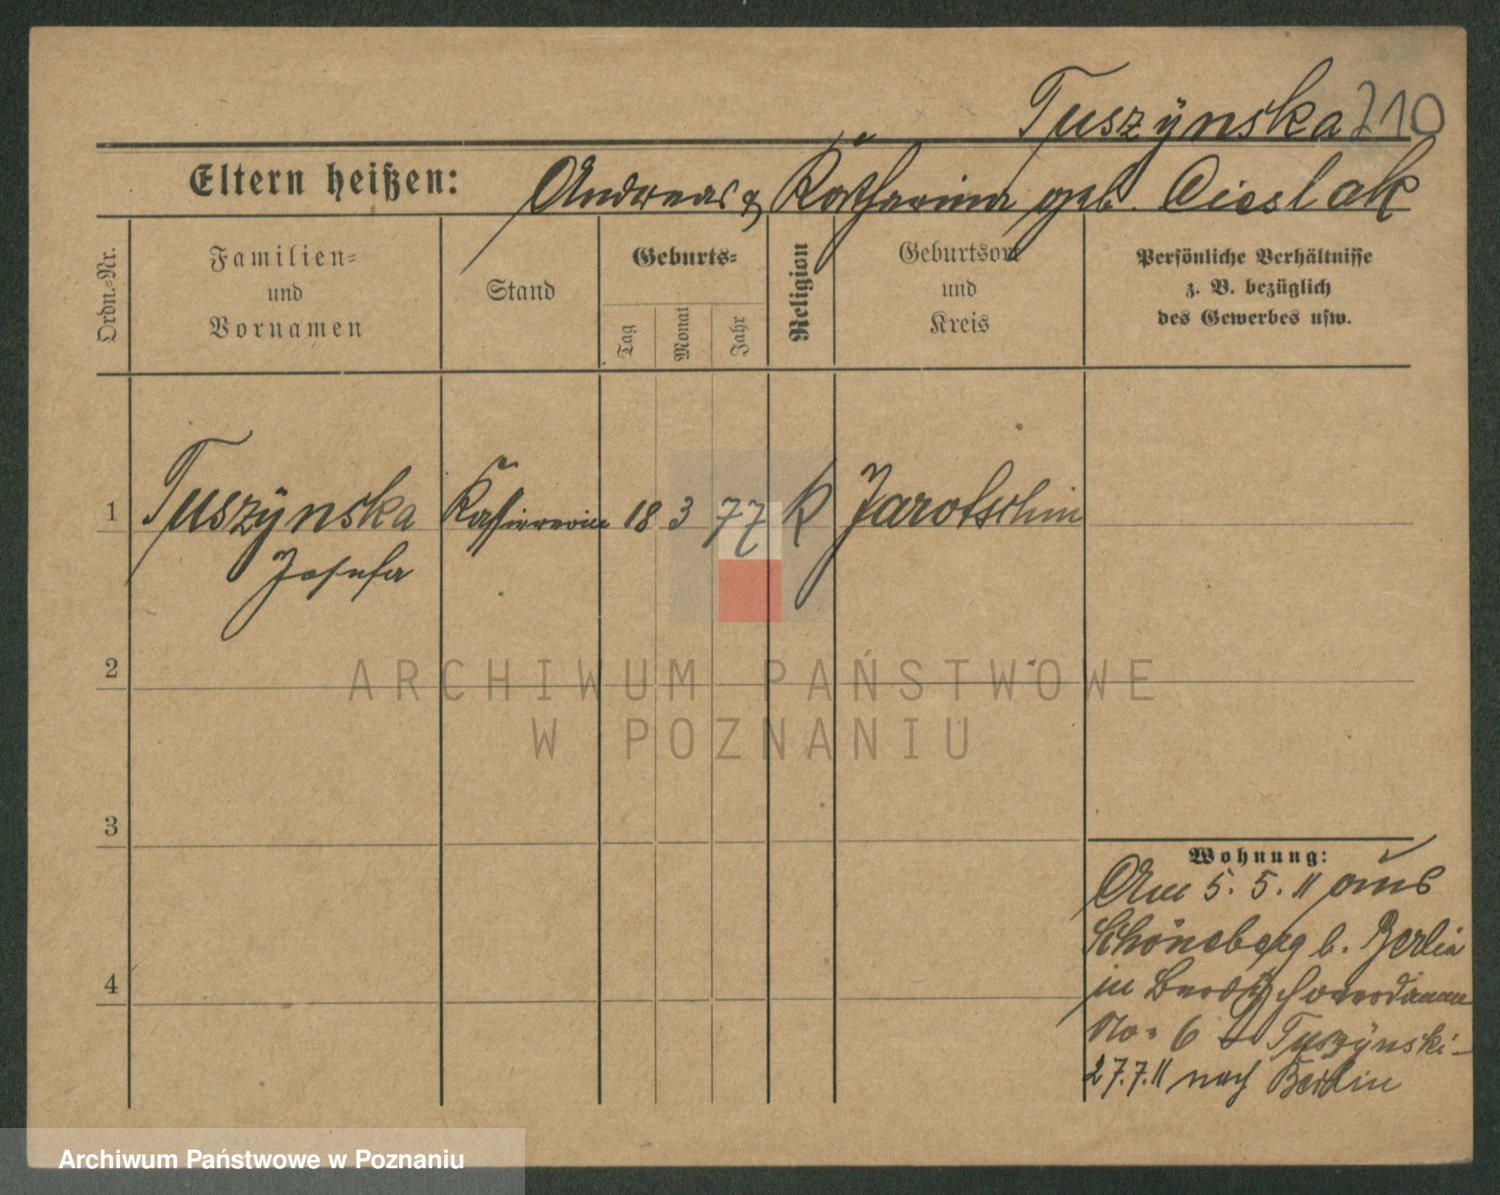 Tuszÿnska 210
Eltern heißen: Andreas & Katharina geb. Cieslak
Ordn.=Nr.
Familien=
und
Vornamen
Stand
Geburts=
Tag
Monat
Jahr
Religion
Geburtsort
und
Kreis
Persönliche Verhältnisse
z. B. bezüglich
des Gewerbes usw.
1 Tuszÿnska Kassiererin 18 3 77 K Jarotschin
Josefa
2
ARCHIWUM PAŃSTWOWE
W POZNANIU
3
4
Wohnung:
Am 5. 5. 11 aus
Schöneberg b. Berlin
in
No. 6 b Tuszÿnski-
27.7.11 nach Berlin
Archiwum Państwowe w Poznaniu